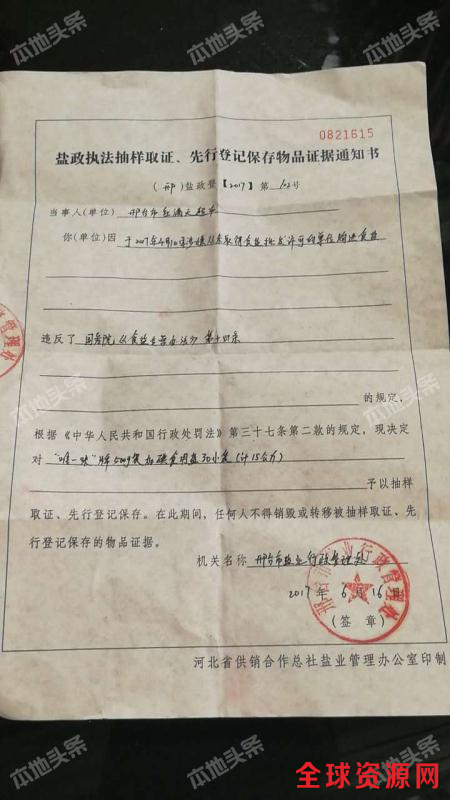 本地头条
本地头条
0821615
盐政执法抽样取证、先行登记保存物品证据通知书
（邢）盐政登【2017】第102号
当事人(单位) 邢台市
你(单位)因 于2017年4月10日涉嫌从未取得食盐批发许可的单位购进食盐
违反了 国务院《食盐专营办法》第十四条
的规定，
根据《中华人民共和国行政处罚法》第三十七条第二款的规定，现决定
对 "唯一味"牌500g装加碘食用盐30小袋(计15公斤)
予以抽样
取证、先行登记保存。在此期间，任何人不得销毁或转移被抽样取证、先
行登记保存的物品证据。
机关名称 邢台市盐业行政管理处
2017年6月16日
(签章)
河北省供销合作总社盐业管理办公室印制
本地头条
本地头条
本地头条
本地头条
全球资源网